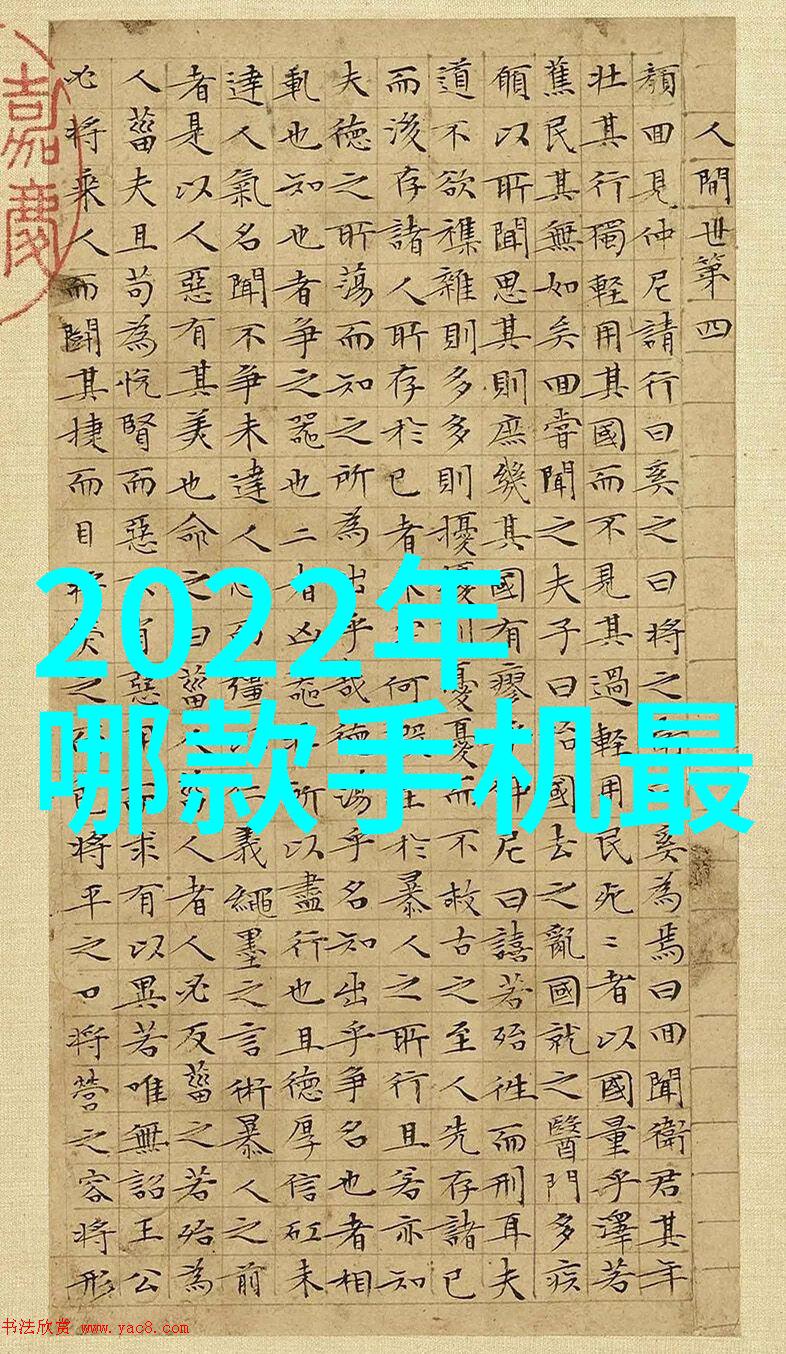 人間世第四
顔回見仲尼請行曰奚之曰將之奚為焉曰回聞衛君其年
壯其行獨輕用其國而不見其過輕用民死〻者以國量乎澤若
蕉民其無如矣回嘗聞之夫子曰治國去之亂國就之醫門多疾
願以所聞思其則庶幾其國有瘳仲尼曰譆若殆往而刑耳夫
道不欲襍雜則多多則擾擾則憂憂而不救古之至人先存諸已
而後存諸人所存於已者何於暴人之所行且若亦知
夫德之所蕩而知之所為出乎哉德蕩乎名知出乎爭名也者相
軋也知也者爭之器也二者凶器所以盡行也且德厚信矼未
達人氣名聞不爭未達人心而彊仁義繩墨之言術暴人之前
者是以人惡有其美也命之曰菑人者人必反菑之若殆為
人菑夫且苟為悅賢而惡肖惡用而求有以異若唯無詔王公
必將乘人而鬭其捷而目將熒之而色將平之口將營之容將形
嘉慶
2022年
哪款手机最
书法欣赏 www.yac8.com